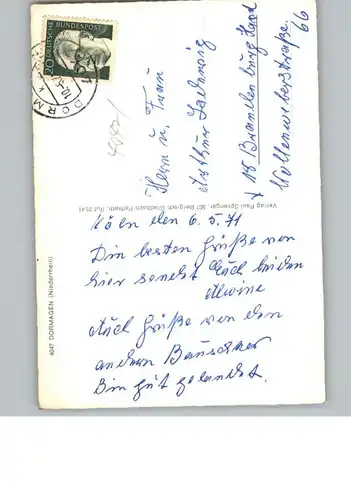 DEUTSCHE BUNDESPOST
20
DORM
Herrn u. Frau
Arthur Ludwig
x 18 Brandenburg Havel
Wollenweberstraße
66
Verlag Paul Spranger, 507 Bergisch Gladbach-Paffrath, Ruf 2541
4047 DORMAGEN (Niederrhein)
Köln den 6.5.71
Die besten Grüße von
hier sendet Euch beiden
Alwine
Auch Grüße von den
andern
Bin gut gelandet.